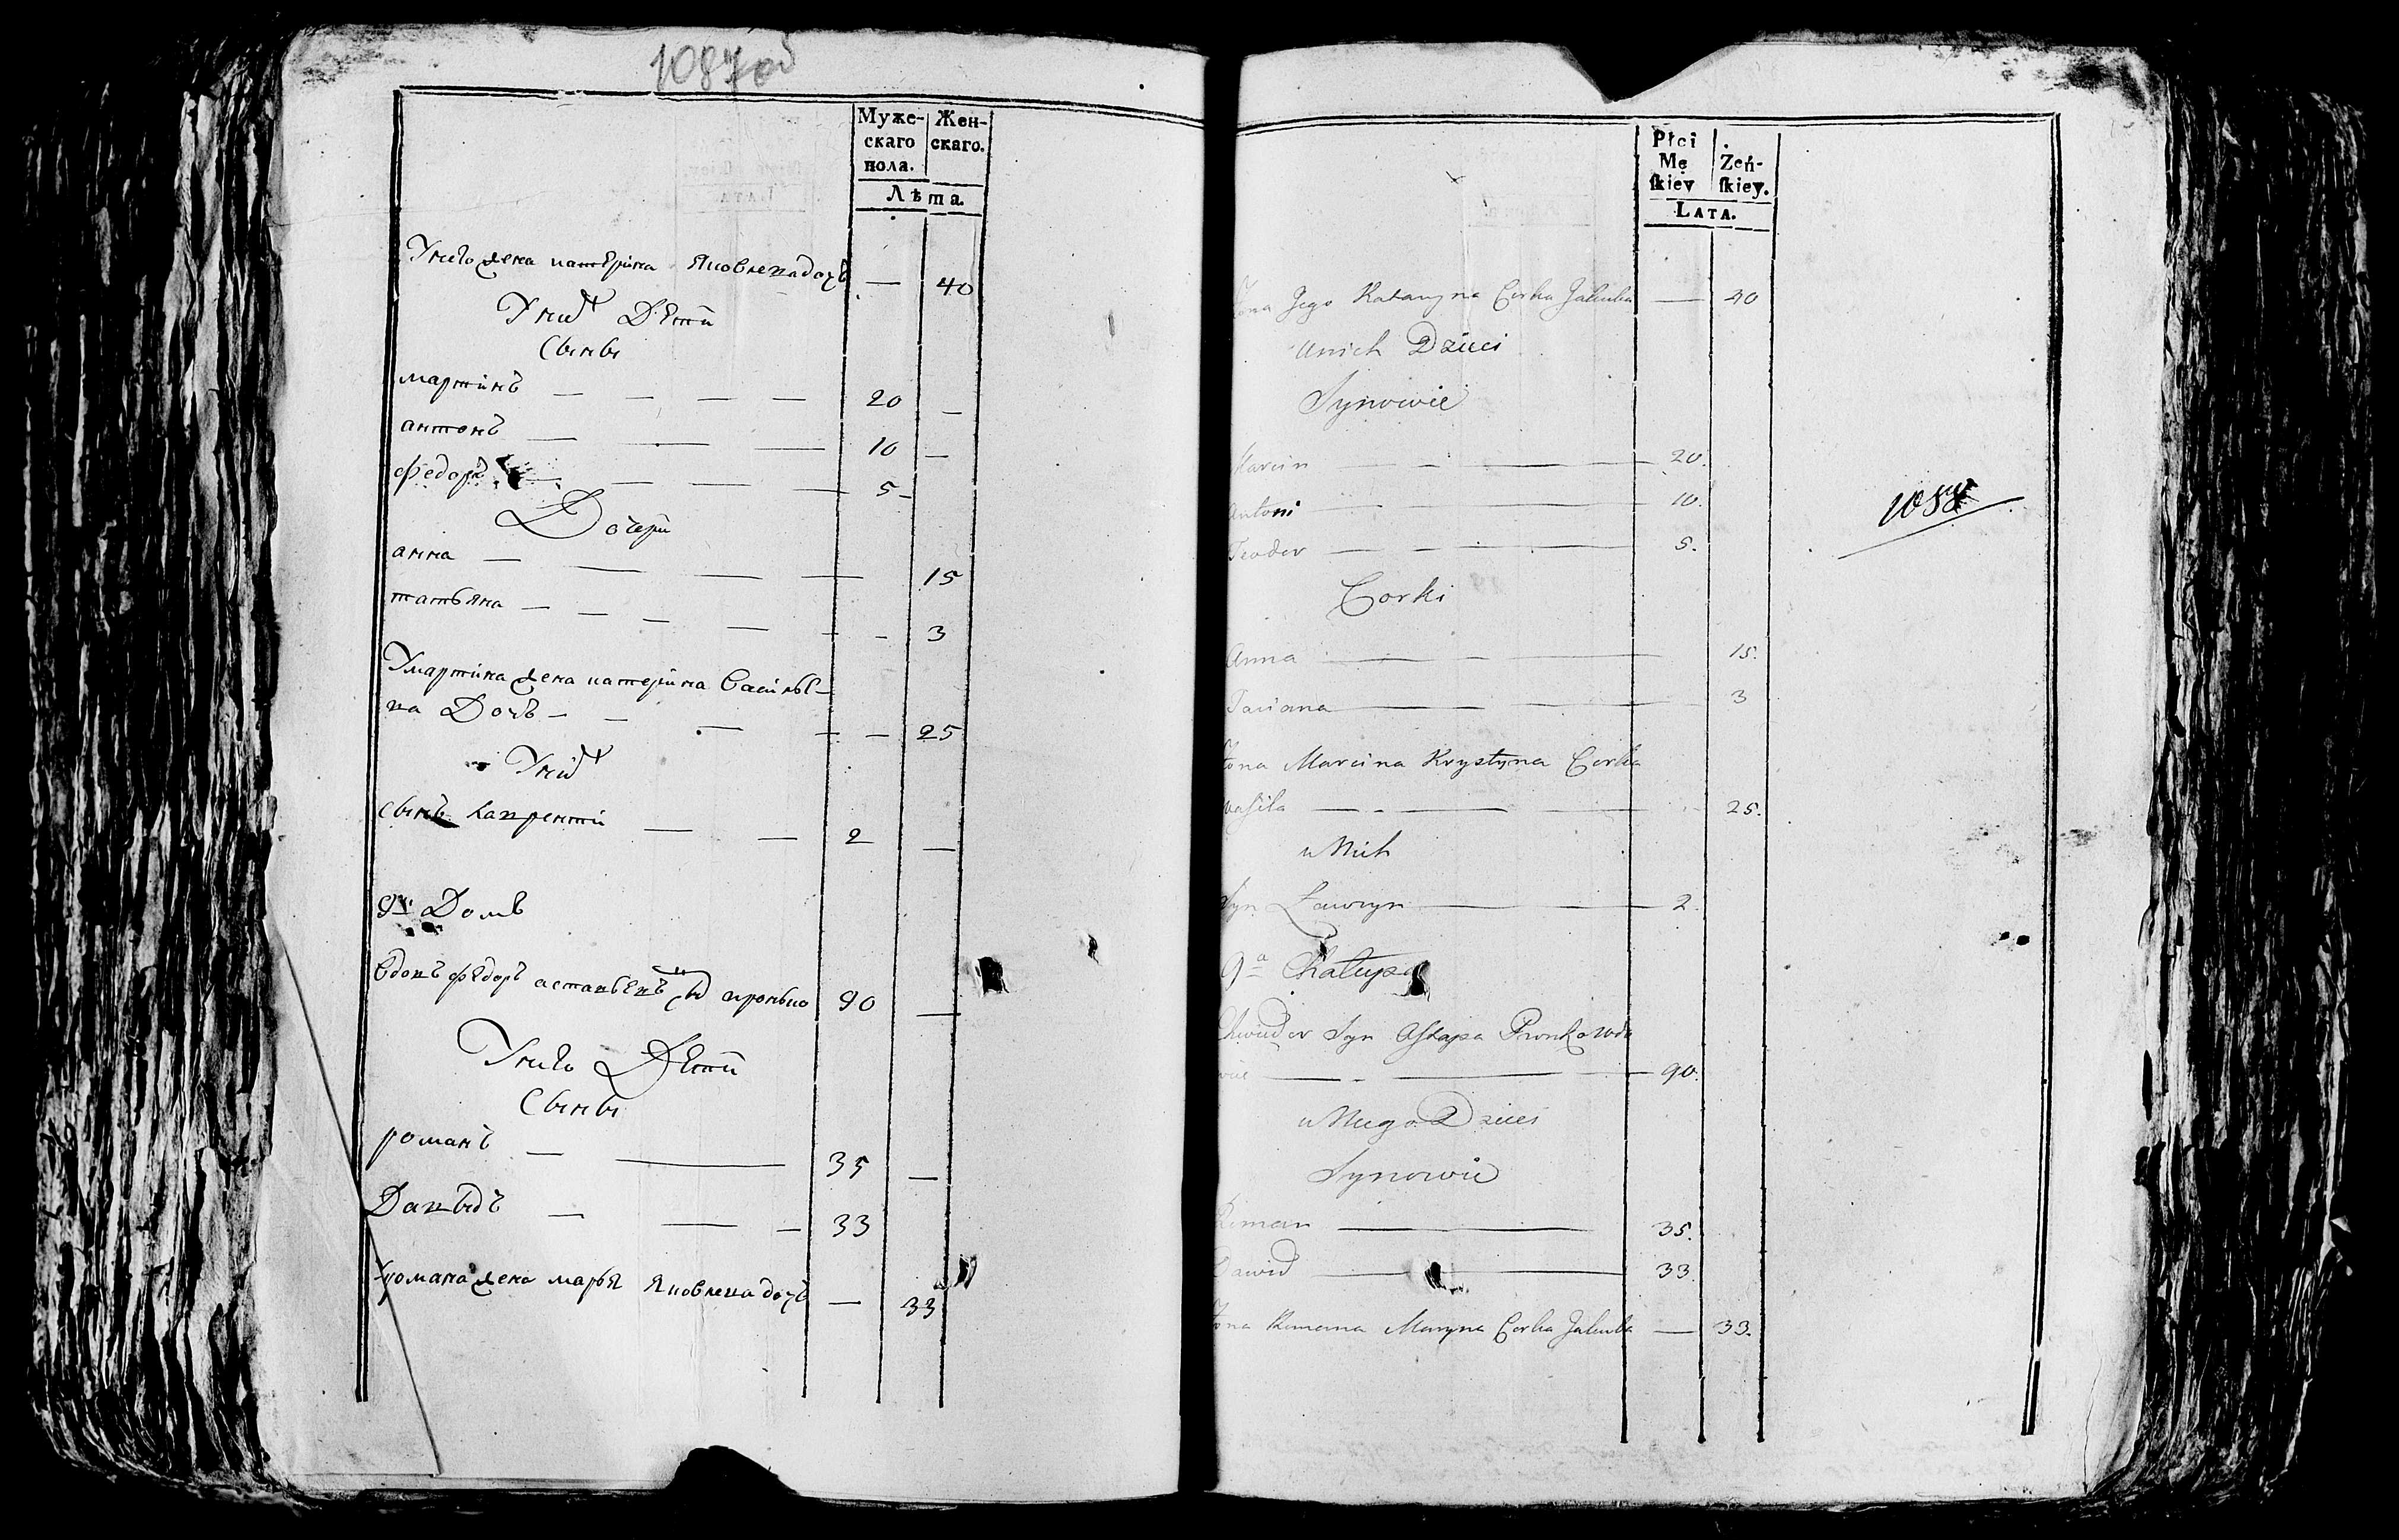 1087об
Муже-
скаго
пола.
Жен-
скаго.
Лѣта.
Унего жена катерина Яковлева дочь — 40
Уних Дети
Сыны
мартинъ — — — — 20 —
антонъ — — — 10 —
федоръ — — — — 5 -
Дочери
анна — — — — 15
татьяна — — — — — - 3
Умартина жена катерина Василье-
ва Дочь — — — — — 25
Уних
сынъ Лаврентий — — 2 —
9й Домъ
Вдовъ федоръ астапъевъ сынъ 90 —
Унего Дети
Сыны
романъ — — 35 —
Давыдъ — — — 33
Уромана жена марья Яковлева дочь — 33
Płci
Mę
ſkiey
Żeń-
ſkiey.
LATA.
Żona Jego Katarzyna Corka Jakuba — 40
unich Dzieci
Synowie
Marcin — — — — 20.
Antoni — — — 10.
Teodor — — — — 5.
Corki
Anna — — — 15.
Taciana — — — 3
Żona Marcina Krystyna Corka
wasila — - — — 25.
u Nich
Syn Ławryn — — 2.
9a Chałupa
Chwiedor Syn Astapa Pronkowi
— - — — 90.
u Niego Dzieci
Synowie
Roman — 35.
Dawid — 33.
Żona Romana Maryna Corka Jakuba — 33.
1088